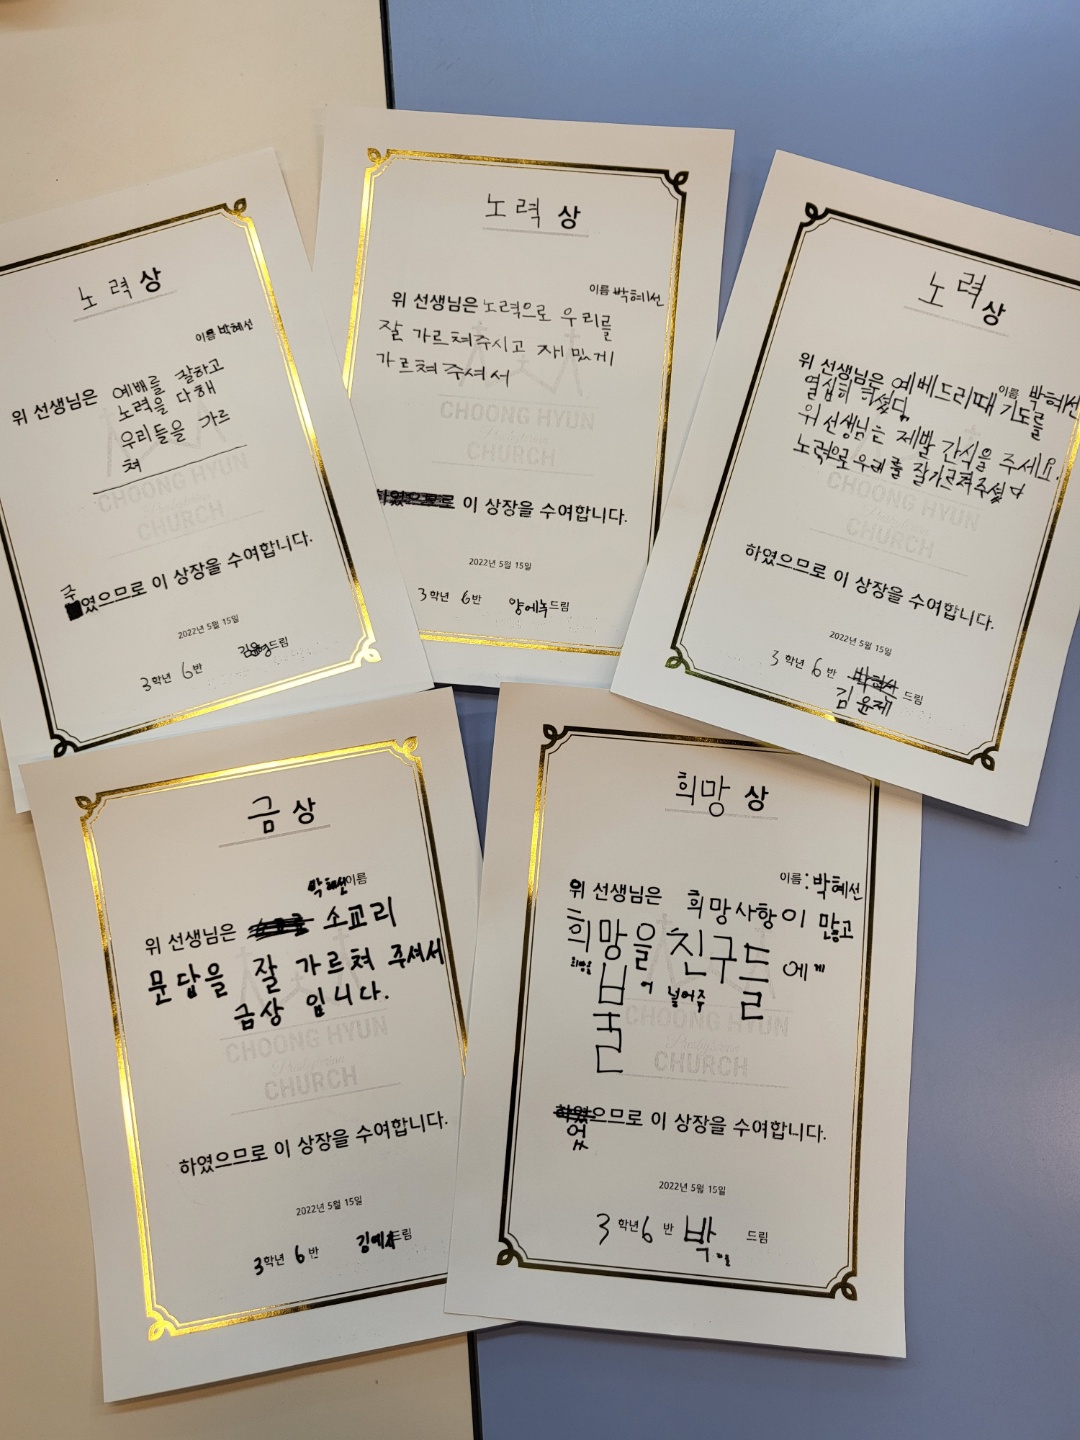 노력상
이름 박혜선
위 선생님은 예배를 잘하고
노력을 다해
우리들을 가르
쳐
CHOONG HYUN
Presbyterian
CHURCH
주
였으므로 이 상장을 수여합니다.
2022년 5월 15일
3학년 6반 드림
노력 상
이름 박혜선
위 선생님은 노력으로 우리를
잘 가르쳐주시고 재밌게
가르쳐 주셔서
CHOONG HYUN
Presbyterian
CHURCH
하였으므로 이 상장을 수여합니다.
2022년 5월 15일
3학년 6반 드림
노력상
이름 박혜선
위 선생님은 예베드리때 기도를
열심히 하셨다
위 선생님는 제발 간식을 주세요.
노력으로 우리를 잘가르쳐주셨다
CHOONG HYUN
CHURCH
하였으므로 이 상장을 수여합니다.
2022년 5월 15일
3학년 6반 드림
김윤제
금상
박혜선이름
위 선생님은 소교리
문답을 잘 가르쳐 주셔서
금상 입니다.
CHOONG HYUN
Presbyterian
CHURCH
하였으므로 이 상장을 수여합니다.
2022년 5월 15일
3학년 6반 드림
희망 상
이름:박혜선
위 선생님은 희망사항이 많고
희망을 친구들에게
희망을
불어 넣어주
CHOONG HYUN
Presbyterian
CHURCH
하였으므로 이 상장을 수여합니다.
었
2022년 5월 15일
3학년 6반 박 드림